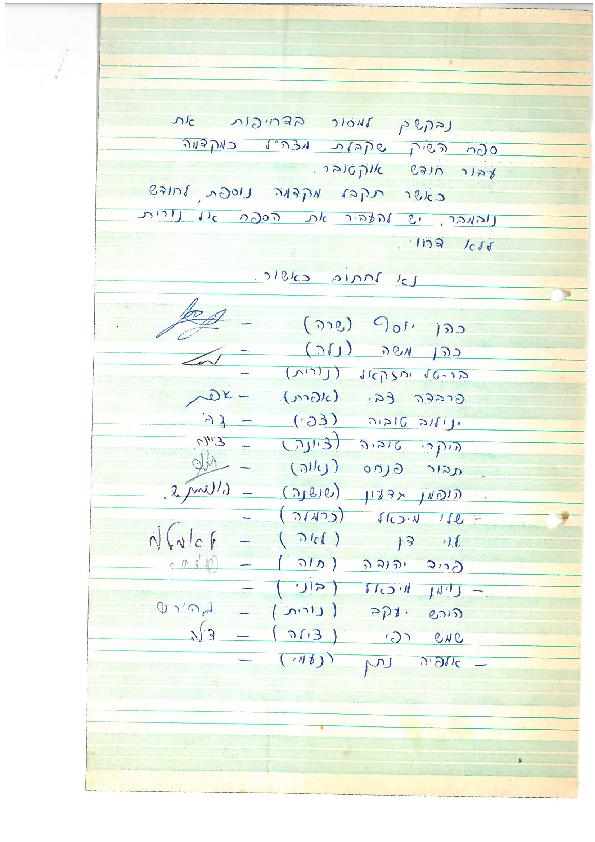 נבקשכן למסור בדחיפות את
ספח השיק שקבעת מצה״ל כמקדמה
עבור חודש אוקטובר.
כאשר תקבל מקדמה נוספת, לחודש
נובמבר, יש להעביר את הספח אל נורית
ללא דחוי.
נא לחתום כאשור.
כהן יוסף (שרה) -
כהן משה (נלה) -
בר-טל יחזקאל (נורית) -
פרבדה צבי (אפרת) - אפרת
ינילוב טוביה (צפי) -
היקרי טוביה (ציונה) - ציונה
תבור פנחס (נאוה) -
הופמן גדעון (שושנה) - הופמן ש.
- שלו מיכאל (כרמלה) -
לוי דן (לאה) -
פריב יהודה (חוה) -
- נוימן מיכאל (בוני) -
הירש יעקב (נורית) - נ. הירש
שמש רפי (צילה) - צילה
- אלפיה נתן (נעמי) -